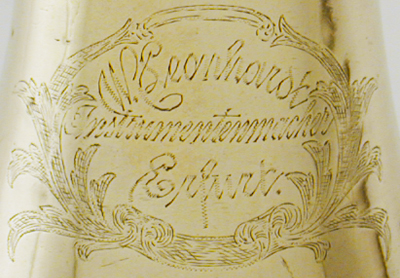 Leonhardt
Instrumentenmacher
Erfurt.